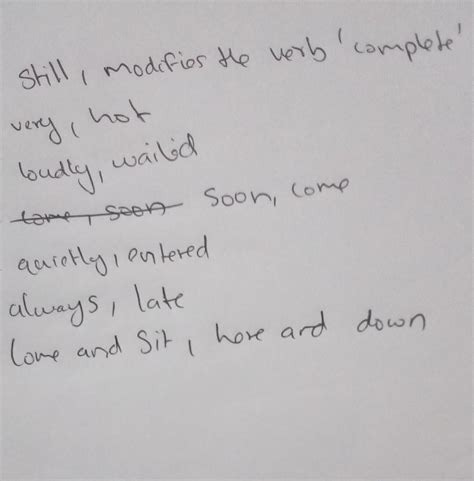 Still, modifies the verb 'complete'
very, hot
loudly, wailed
come, soon soon, come
quietly, entered
always, late
Come and Sit, here and down